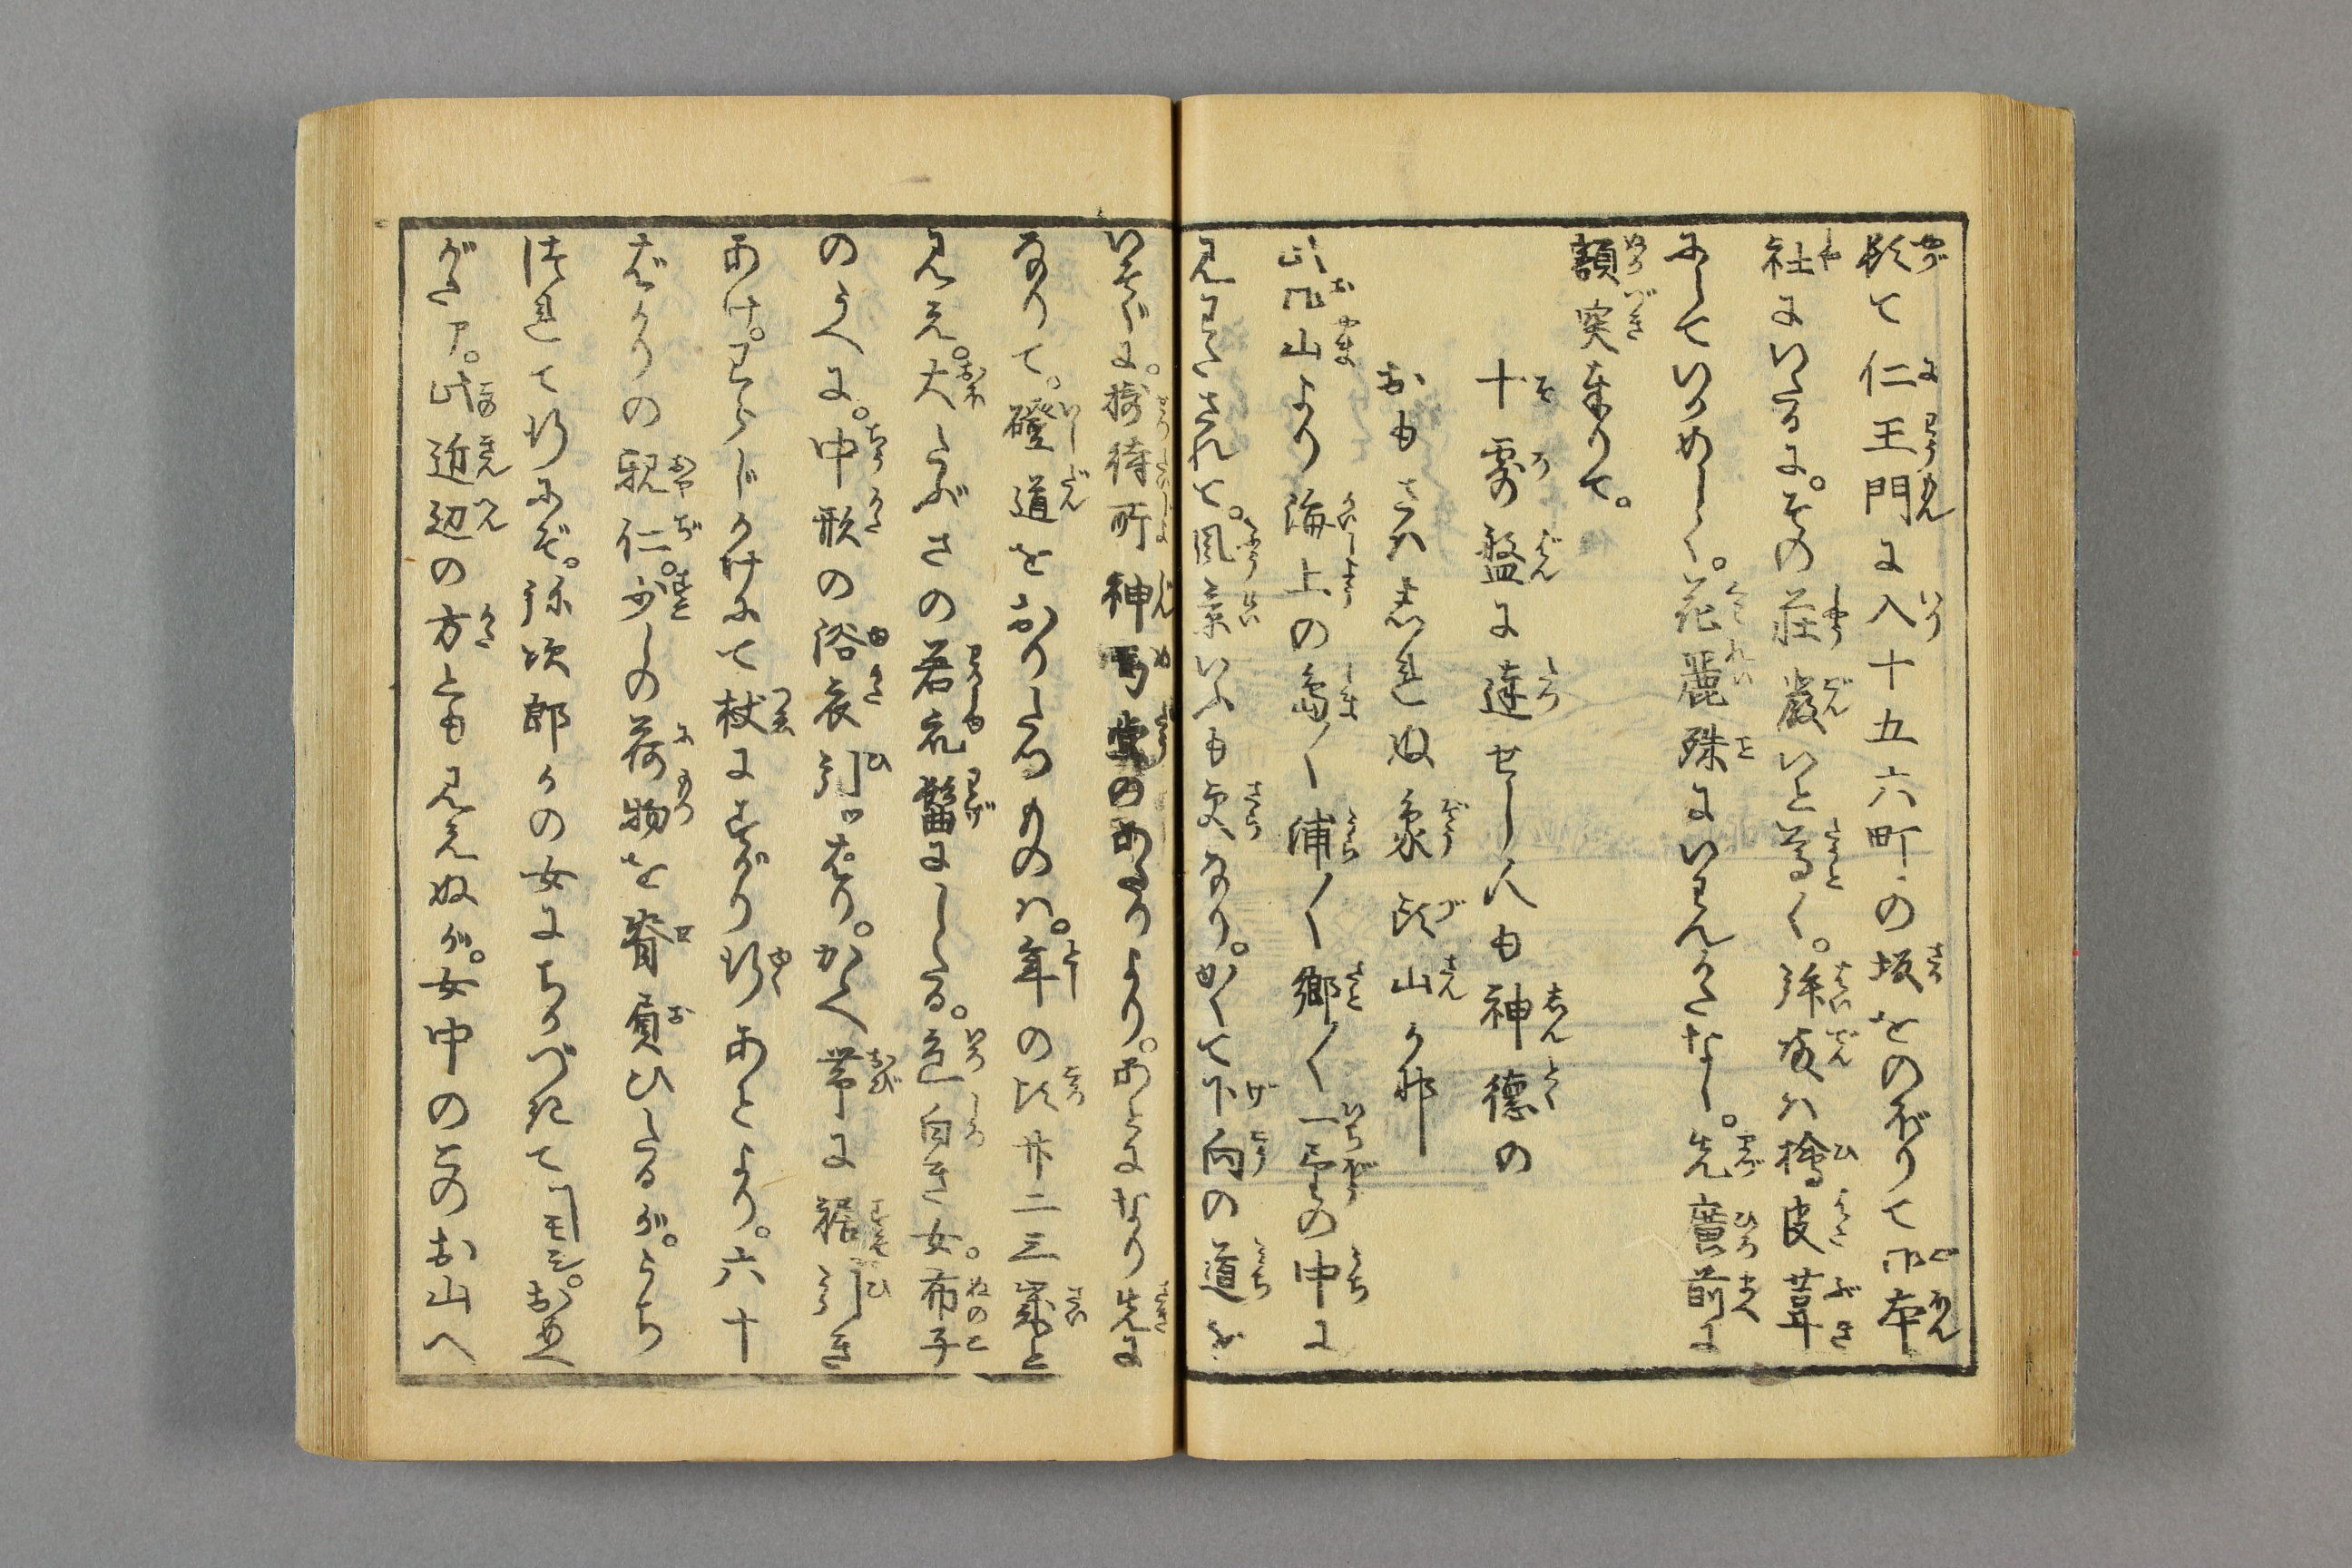 頓て仁王門に入十五六町の坂をのぼりて御本
社にいたるに。その荘厳いと尊く。拝殿は檜皮葺
にしていかめしく。花麗殊にいはんかたなし。先廣前に
額突奉りて。
十露盤に達せし人も神徳の
おもさはしれぬ象頭山かな
此御山より海上の島〳〵浦〳〵郷〳〵一望の中に
見わたされて。風景いふも更なり。かくて下向の道を
いそぐに。接待所神馬堂のあたりより。あとになり先に
なりて。磴道をおりたつものは。年の頃廿二三歳と
見え。大たぶさの若衆髷にしたる。色白き女。布子
のうへに。中形の浴衣引はり。かゝへ帯に裾引き
あけ。わらじかけにて杖にすがり行あとより。六十
ばかりの親仁。少しの荷物を脊負ひたるが。うち
つれて行にぞ。弥次郎かの女にちかづきて「モシ。おめへ
がたア。此近辺の方とも見えぬが。女中のこのお山へ